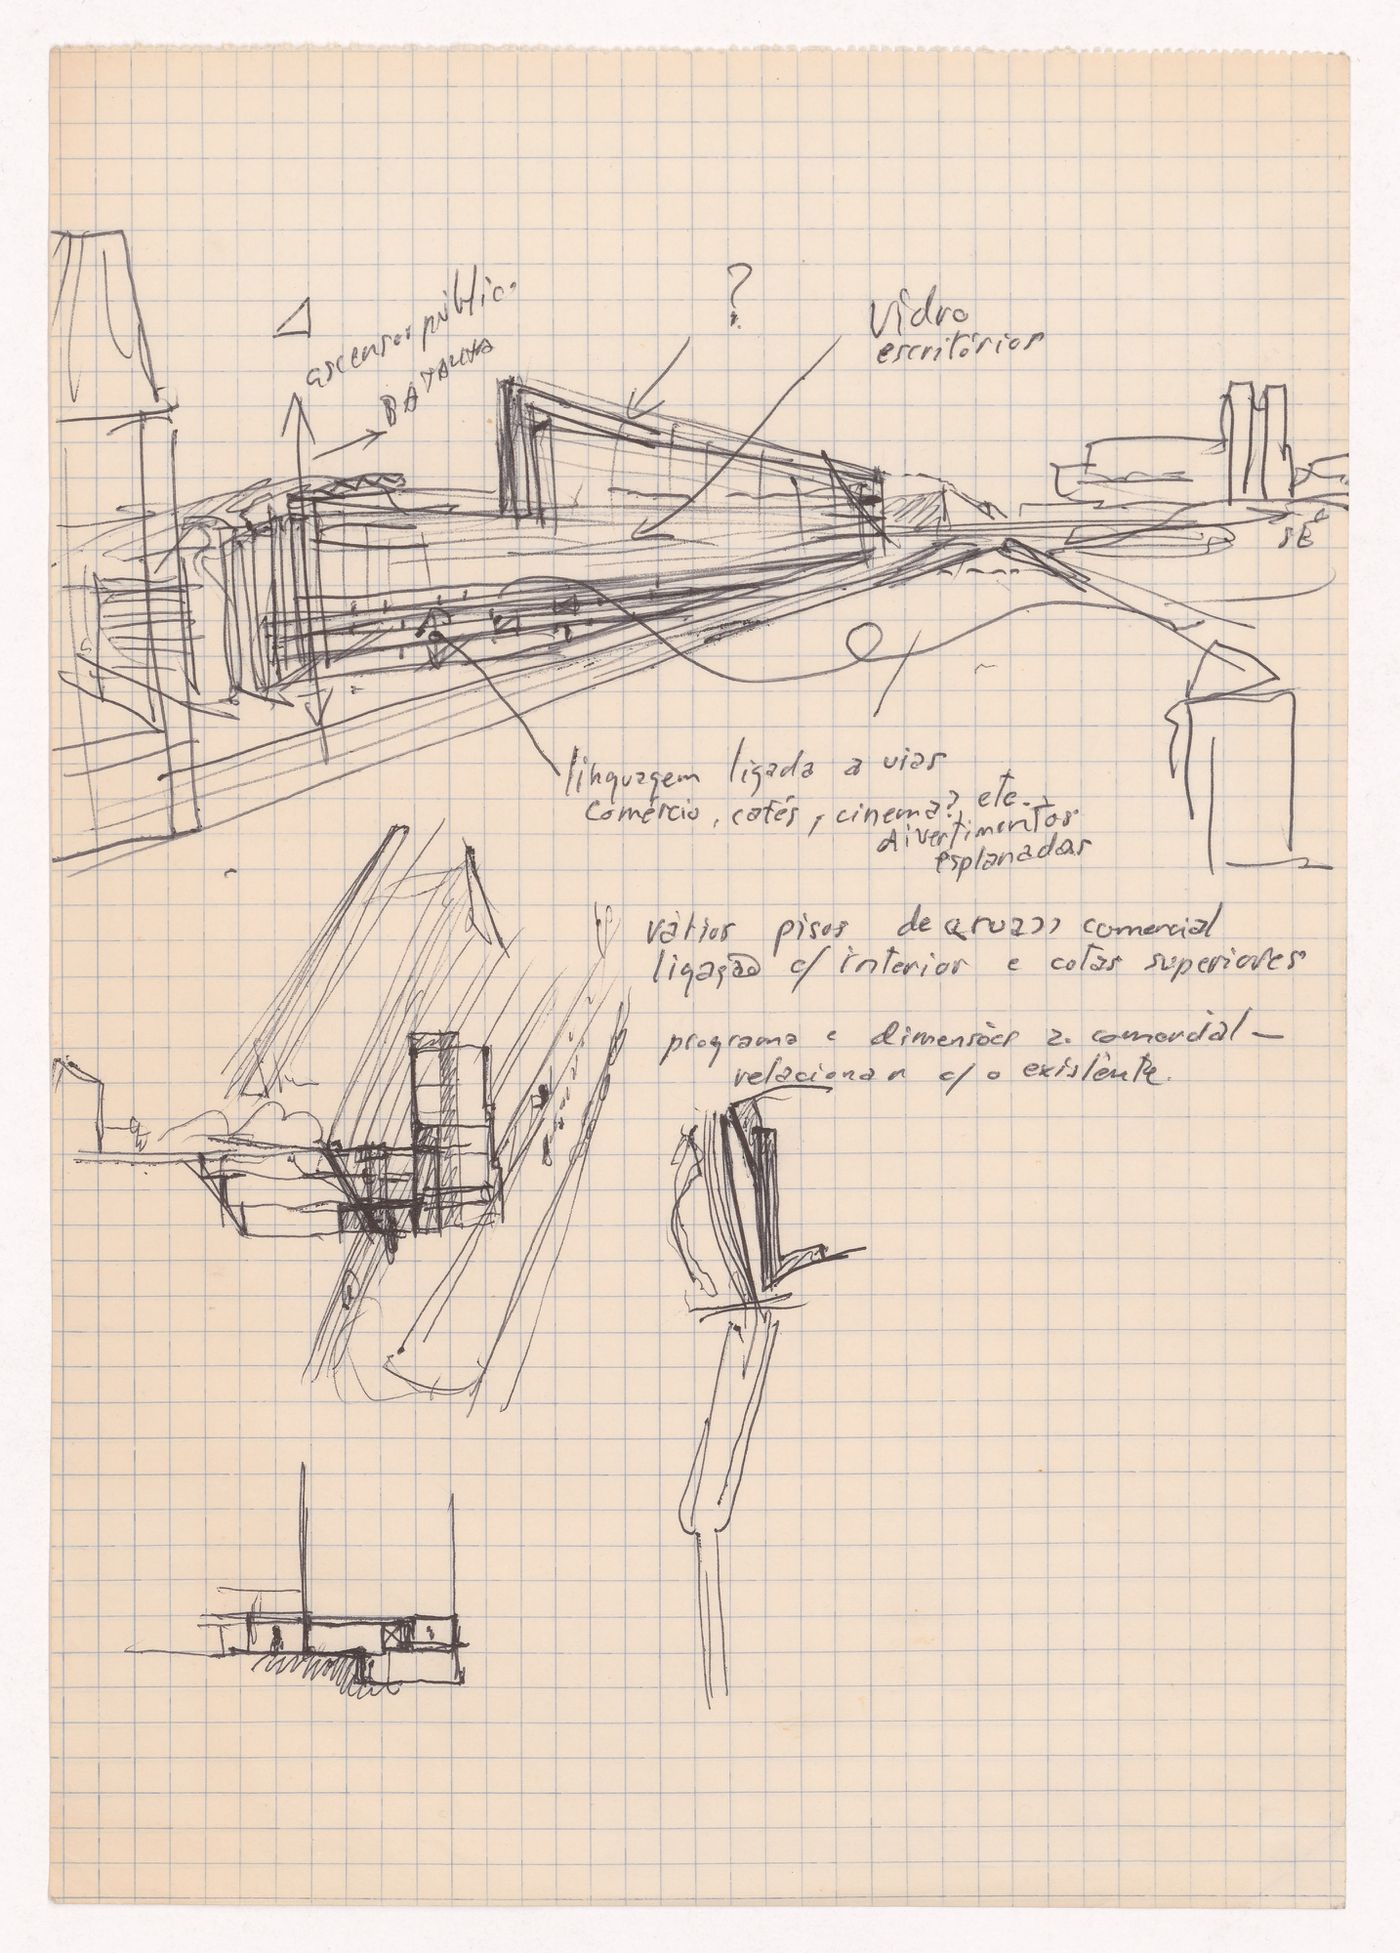 ?
Vidro
escritórios
ascensor públic.
BATALHA
SÉ
linguagem ligada a vias
comércio, cafés, cinema? etc.
divertimentos
esplanadas
vários pisos de comercial
ligação c/ interior e cotas superiores
programa e dimensões comercial —
relacionar c/ o existente.